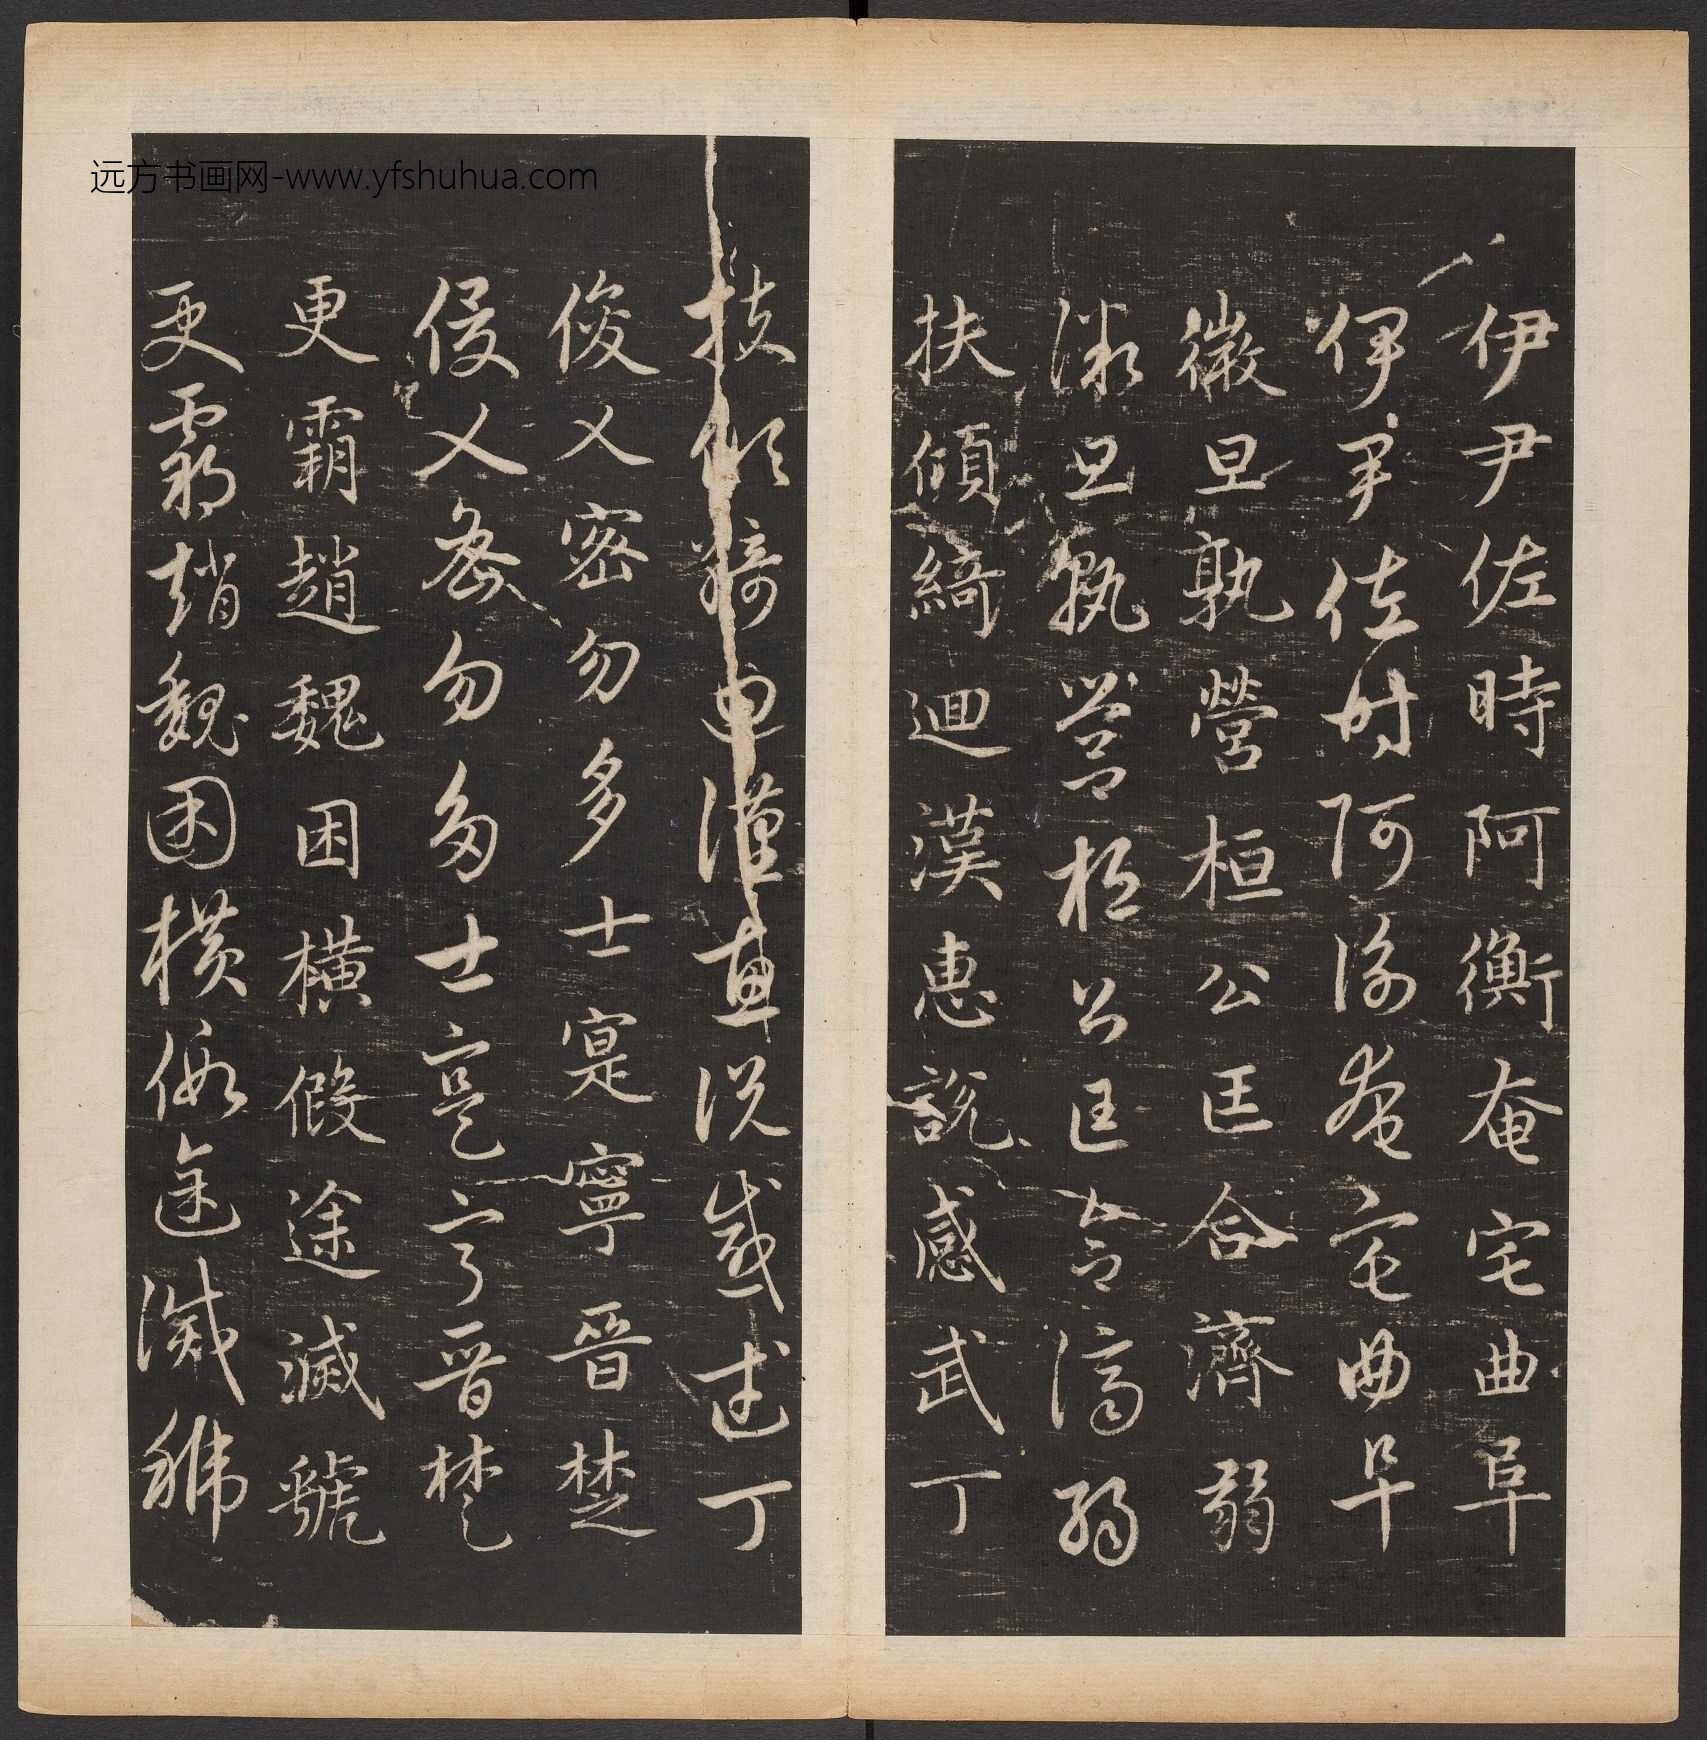 远方书画网-www.yfshuhua.com
伊尹佐時阿衡奄宅曲阜
伊尹佐時阿衡奄宅曲阜
微旦孰營桓公匡合濟弱
微旦孰營桓公匡合濟弱
扶傾綺迴漢惠說感武丁
扶傾綺迴漢惠說感武丁
俊乂密勿多士寔寧晉楚
俊乂密勿多士寔寧晉楚
更霸趙魏困橫假途滅虢
更霸趙魏困橫假途滅虢